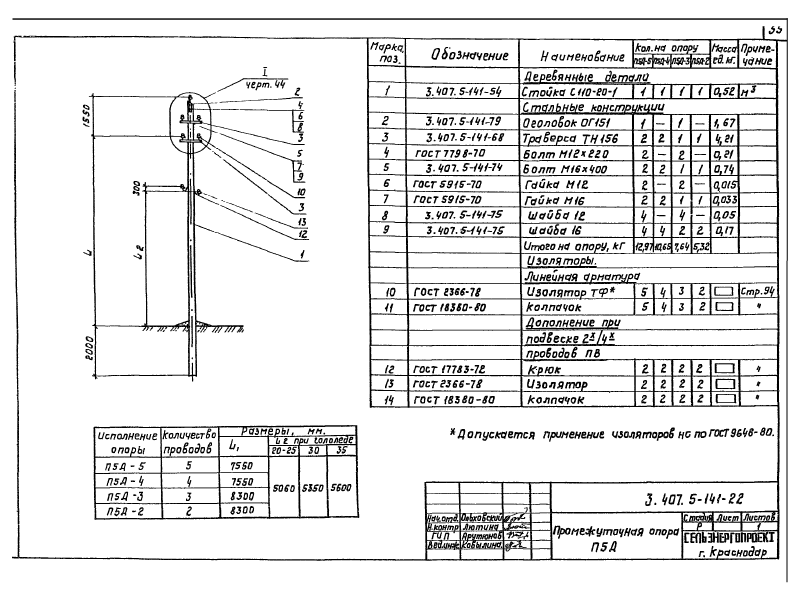 55
Марка, поз. Обозначение Наименование Кол. на опору Масса ед. кг. Приме-чание
П5Д-5 П5Д-4 П5Д-3 П5Д-2
Деревянные детали
1 3.407.5-141-54 Стойка С110-20-1 1 1 1 1 0,52 м³
Стальные конструкции
2 3.407.5-141-79 Оголовок ОГ151 1 — 1 — 1,67
3 3.407.5-141-68 Траверса ТН156 2 2 1 1 4,21
4 ГОСТ 7798-70 Болт М12×220 2 — 2 — 0,21
5 3.407.5-141-74 Болт М16×400 2 2 1 1 0,74
6 ГОСТ 5915-70 Гайка М12 2 — 2 — 0,015
7 ГОСТ 5915-70 Гайка М16 2 2 1 1 0,033
8 3.407.5-141-75 Шайба 12 4 — 4 — 0,05
9 3.407.5-141-75 Шайба 16 4 4 2 2 0,17
Итого на опору, кг 12,97 10,65 7,64 5,32
Изоляторы.
Линейная арматура
10 ГОСТ 2366-78 Изолятор ТФ* 5 4 3 2 Стр.94
11 ГОСТ 18380-80 Колпачок 5 4 3 2 "
Дополнение при
подвеске 2х/4х
проводов ПВ
12 ГОСТ 17783-72 Крюк 2 2 2 2 "
13 ГОСТ 2366-78 Изолятор 2 2 2 2 "
14 ГОСТ 18380-80 Колпачок 2 2 2 2 "
* Допускается применение изоляторов НС по ГОСТ 9648-80.
I
черт. 44
2
4
6
8
3
5
7
9
10
3
13
12
1
1550
300
L
L2
2000
Исполнение опоры Количество проводов Размеры, мм.
L1 L2 при гололеде
20-25 30 35
П5Д-5 5 7550
П5Д-4 4 7550
5060 5350 5600
П5Д-3 3 8300
П5Д-2 2 8300
3.407.5-141-22
Нач.отд. Ольховский
Н.контр Лютина
ГИП Арутюнов
Вед.инж Кобылина
Промежуточная опора
П5Д
Стадия Лист Листов
Р 1
СЕЛЬЭНЕРГОПРОЕКТ
г. Краснодар